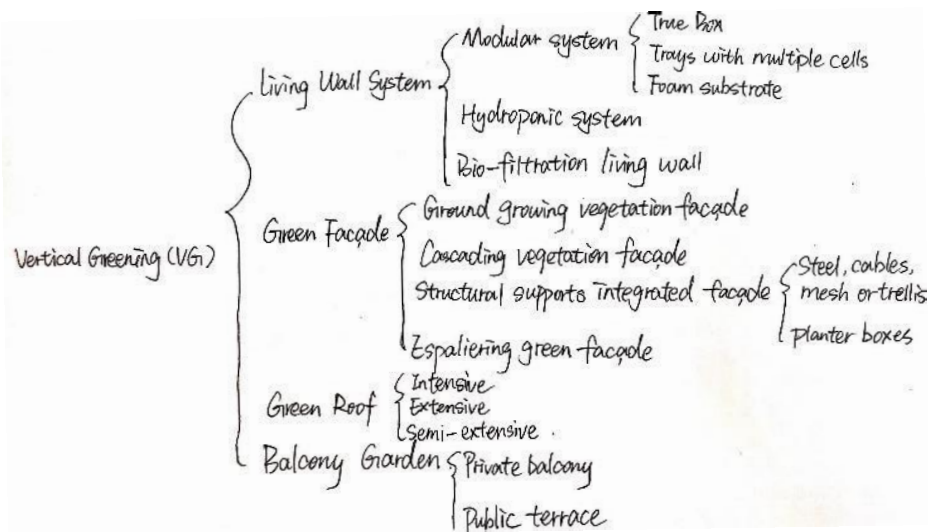 Vertical Greening (VG)
Living Wall System
Modular system
True Box
Trays with multiple cells
Foam substrate
Hydroponic system
Bio-filtration living wall
Green Façade
Ground growing vegetation façade
Cascading vegetation façade
Structural supports integrated façade
Steel, cables,
mesh or trellis
Planter boxes
Espaliering green façade
Green Roof
Intensive
Extensive
Semi-extensive.
Balcony Garden
Private balcony
Public terrace